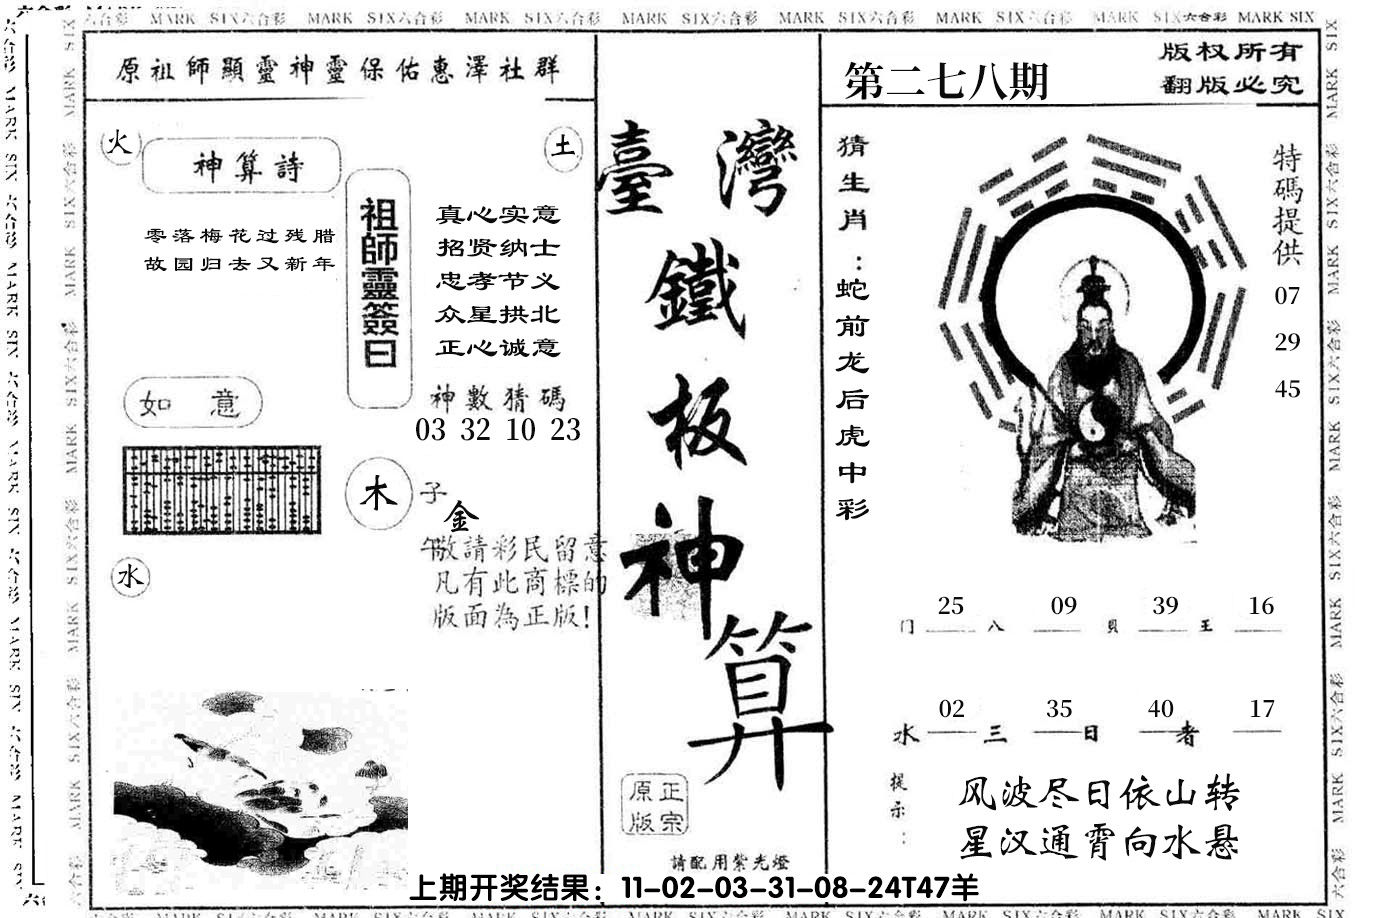 六合彩 MARK SIX六合彩 MARK SIX六合彩 MARK SIX六合彩 MARK SIX六合彩 MARK SIX六合彩 MARK SIX六合彩 MARK SIX六合彩 MARK SIX
原祖師顯靈神靈保佑惠澤社群
火
土
神算詩
零落梅花过残腊
故园归去又新年
祖師靈簽曰
真心实意
招贤纳士
忠孝节义
众星拱北
正心诚意
如 意
神數猜碼
03 32 10 23
木
子
金
午
水
敬請彩民留意
凡有此商標的
版面為正版!
臺灣
鐵
板
神
算
正宗
原版
請配用紫光燈
第二七八期
版权所有
翻版必究
猜生肖:蛇前龙后虎中彩
特碼提供
07
29
45
门 25 八 09 貝 39 王 16
水 02 三 35 日 40 者 17
提示:
风波尽日依山转
星汉通霄向水悬
上期开奖结果：11-02-03-31-08-24T47羊